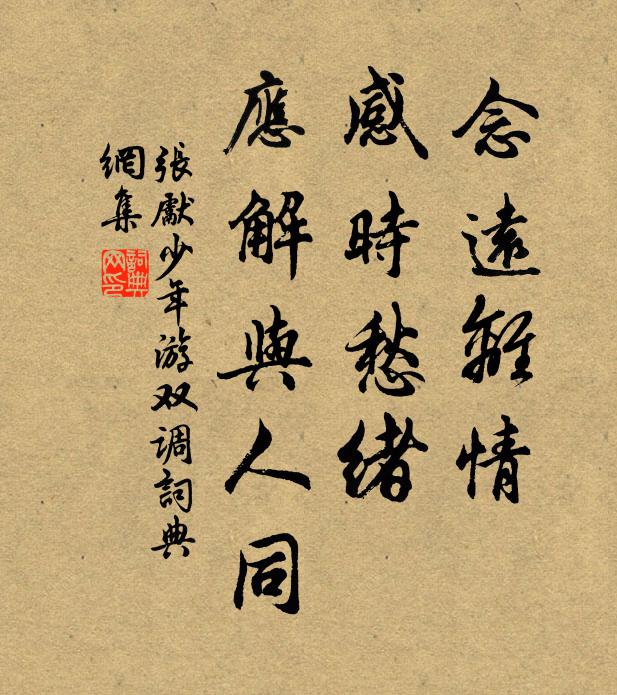 念遠離情
感時愁緒
應解與人同
張獻少年游双调詞典
網集
詞典
网印